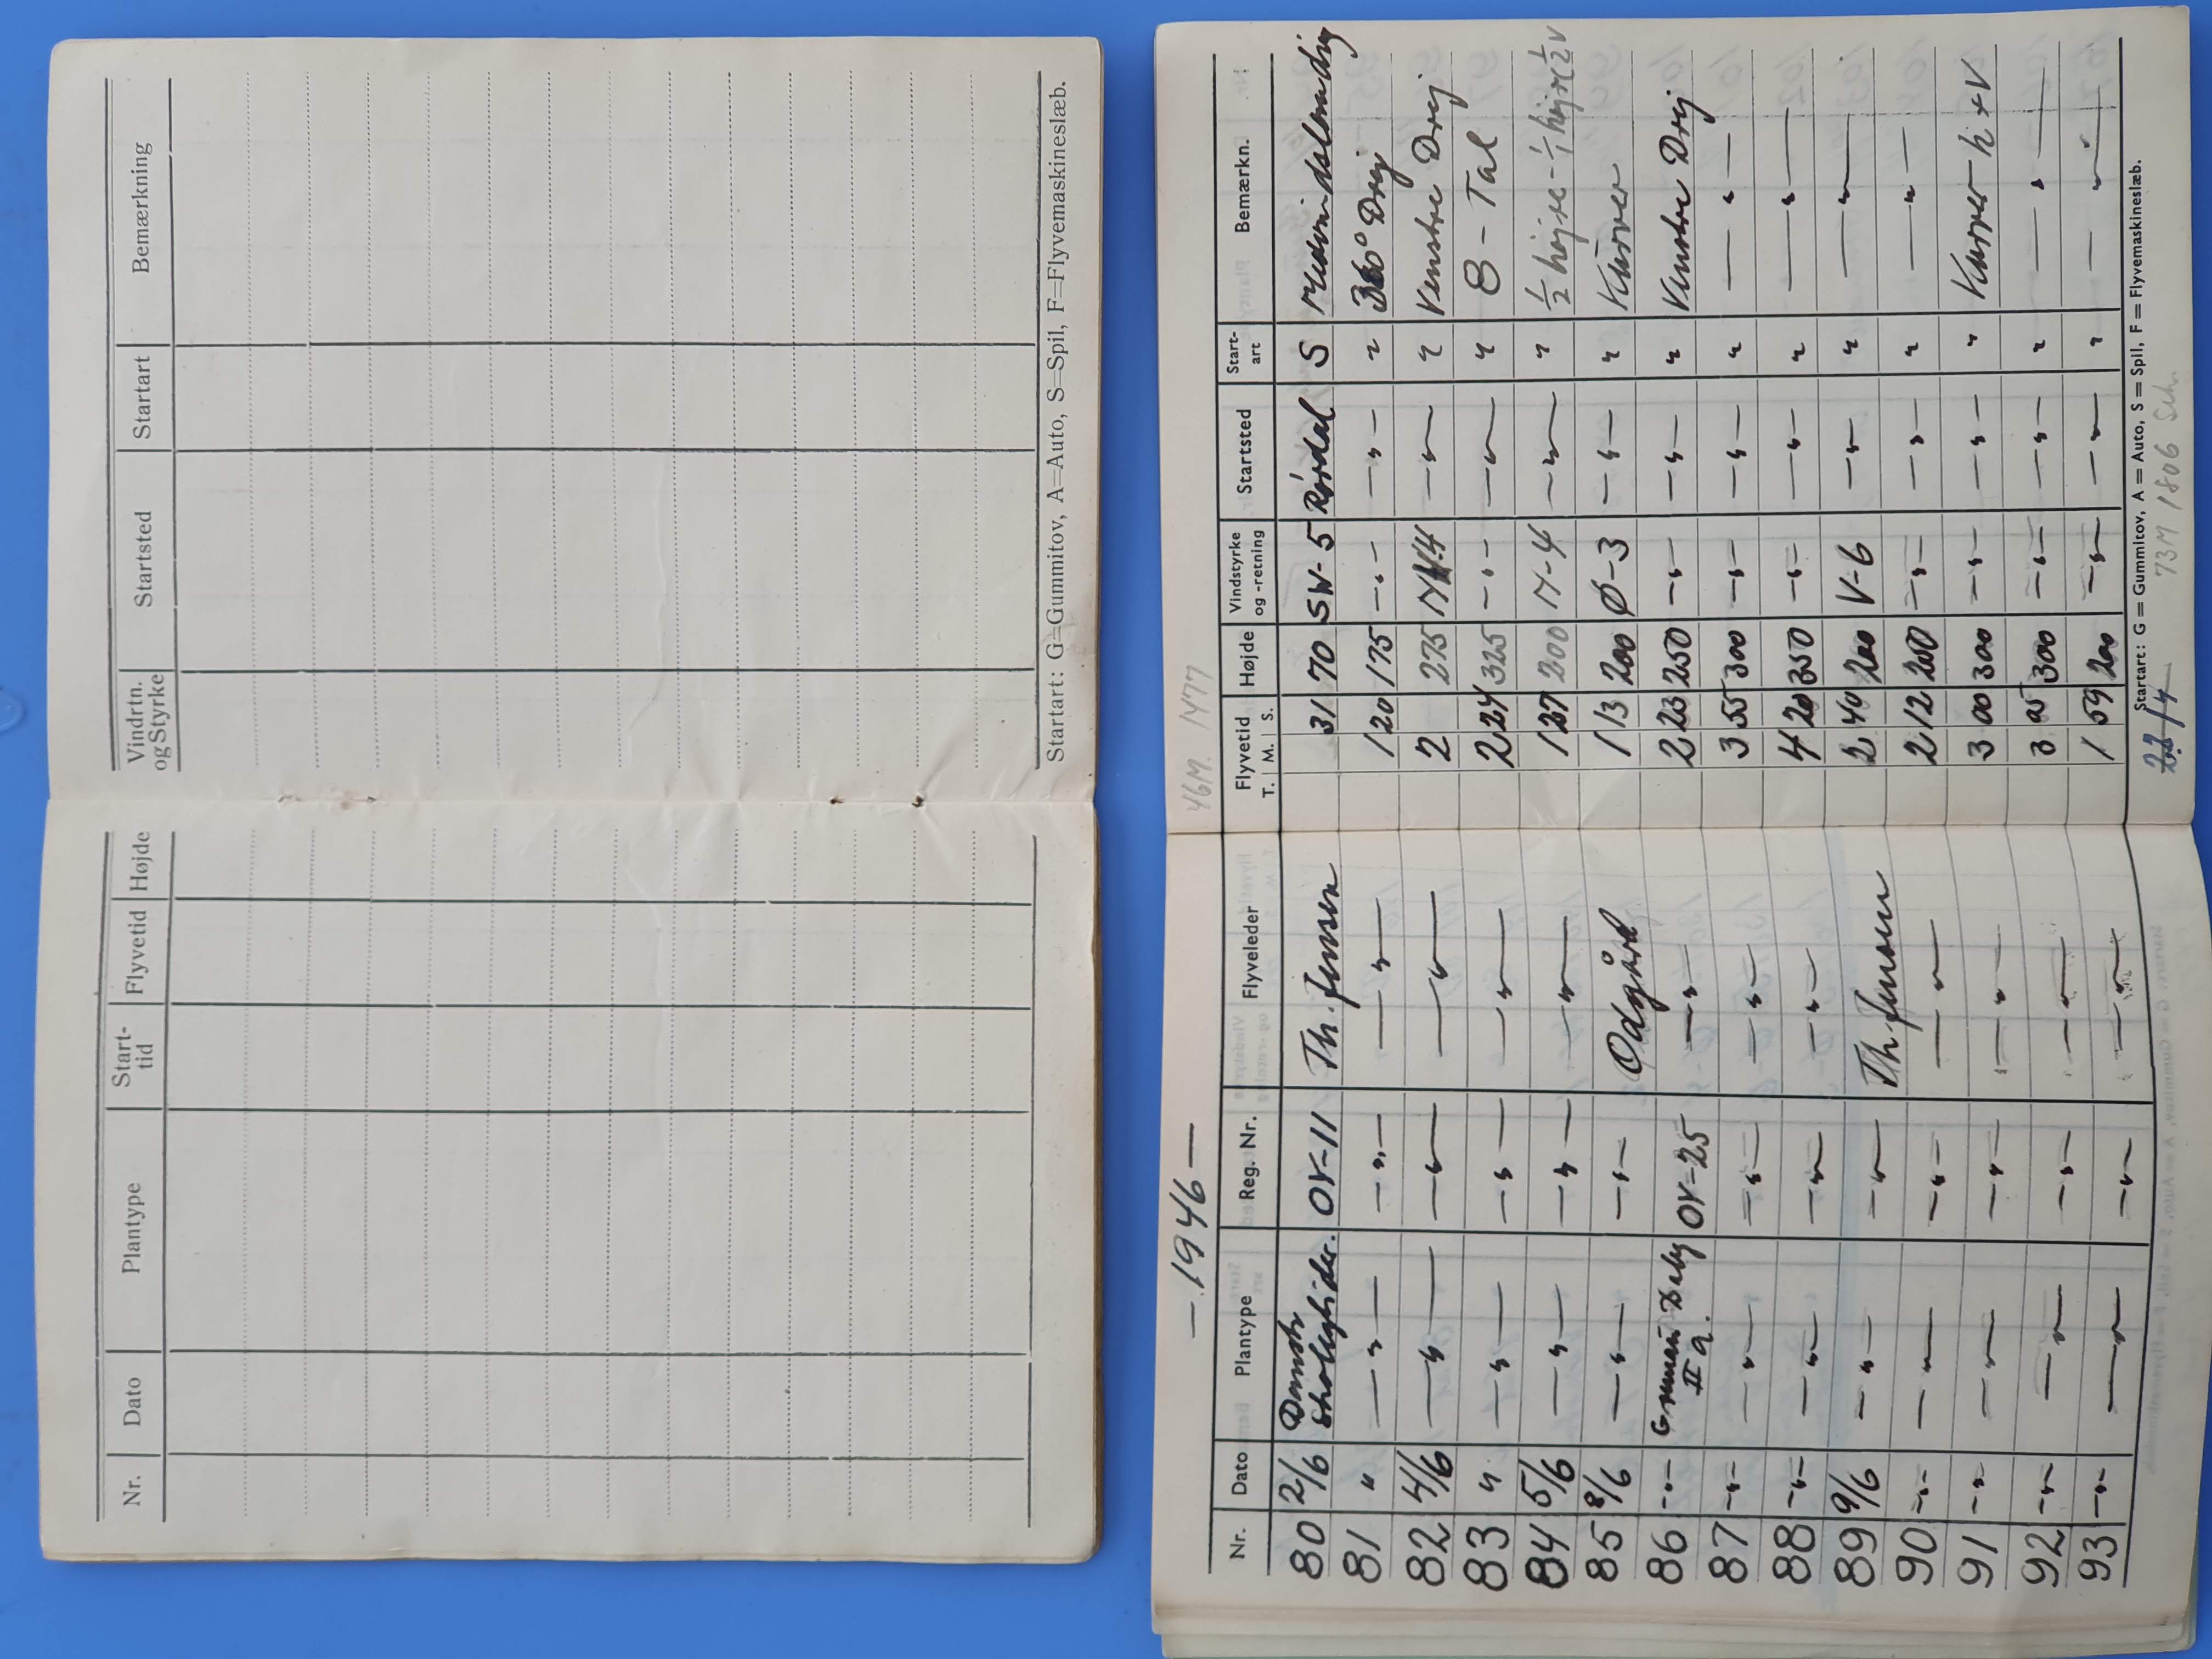 Nr. Dato Plantype Start-tid Flyvetid Højde Vindrtn. og Styrke Startsted Startart Bemærkning
Startart: G=Gummitov, A=Auto, S=Spil, F=Flyvemaskineslæb.
— 1946 — 46M. 1477
Nr. Dato Plantype Reg. Nr. Flyveleder Flyvetid T. M. S. Højde Vindstyrke og -retning Startsted Start-art Bemærkn.
80 2/6 Dansk Skoleglider. OY-11 Th. Jensen 31 70 SW-5 Rørdal S
81 " —"— —"— —"— 1 20 175 —"— —"— " 360° Drej
82 4/6 —"— —"— —"— 2 275 —"— " Venstre Drej
83 " —"— —"— —"— 2 24 325 —"— —"— " 8 - Tal
84 5/6 —"— —"— —"— 1 27 200 N-4 —"— " 1/2 højre - 1/1 højre 1/2 V
85 8/6 —"— —"— Odgård 1 13 200 Ø-3 —"— " Kurver
86 —"— Grunau Baby II a. OY-25 —"— 2 23 250 —"— —"— " Venstre Drej
87 —"— —"— —"— —"— 3 55 300 —"— —"— " —"—
88 —"— —"— —"— —"— 4 20 350 —"— —"— " —"—
89 9/6 —"— —"— Th. Jensen 2 40 200 V-6 —"— " —"—
90 —"— —"— —"— —"— 2 12 200 —"— —"— " —"—
91 —"— —"— —"— —"— 3 00 300 —"— —"— " Kurver h + V
92 —"— —"— —"— —"— 3 05 300 —"— —"— " —"—
93 —"— —"— —"— —"— 1 59 200 —"— —"— " —"—
Startart: G = Gummitov, A = Auto, S = Spil, F = Flyvemaskineslæb.
73M 1806 Sek.